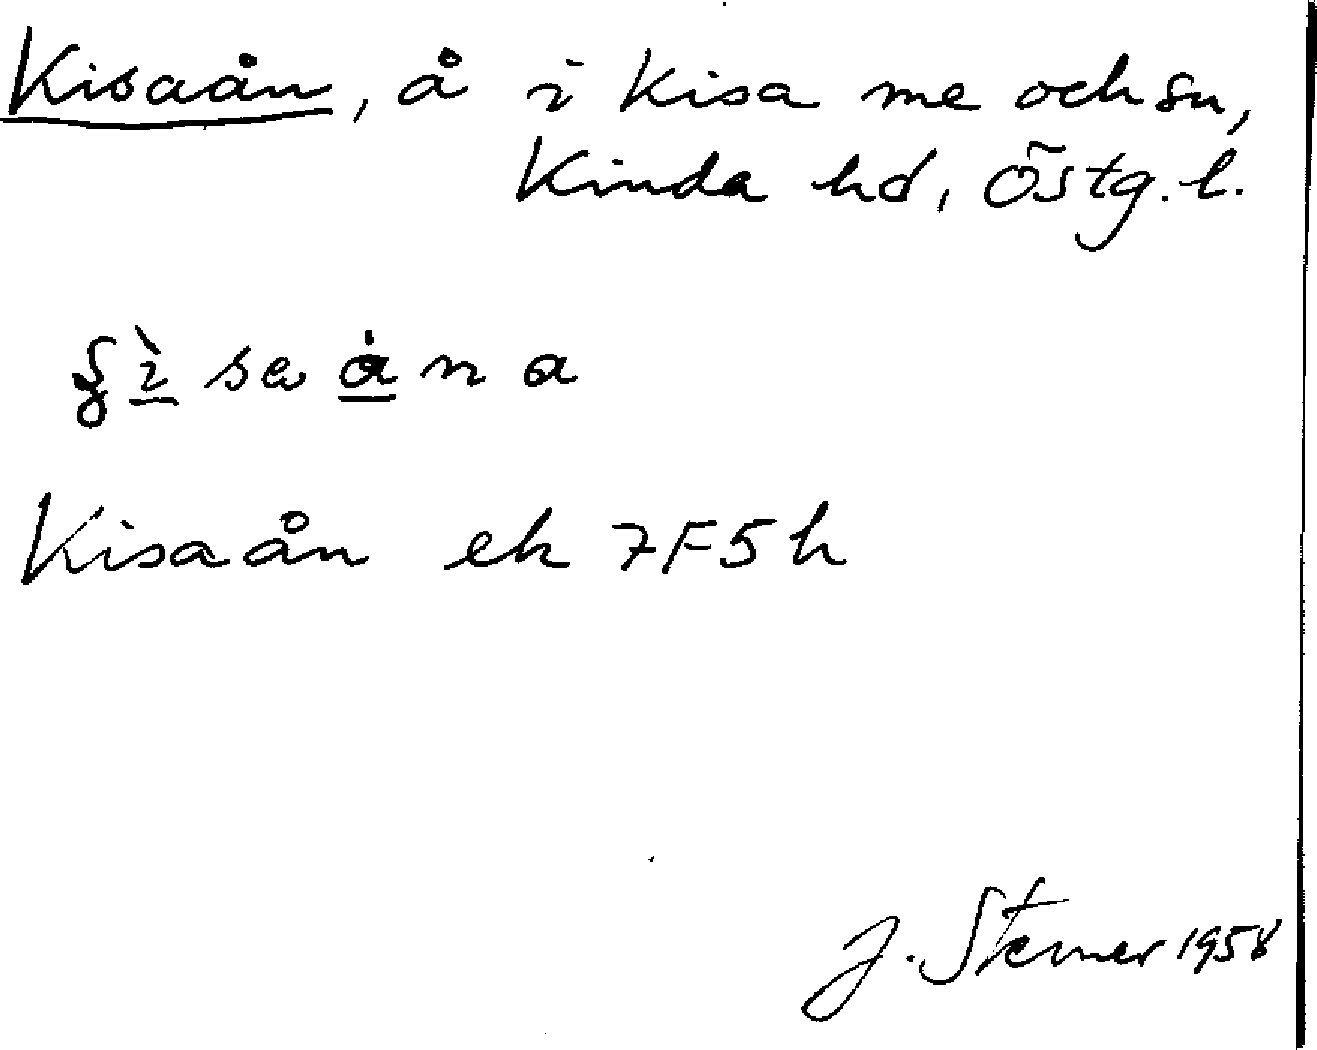 Kisaån, å i Kisa me och sn,
Kinda hd, Östg. l.
Kisaån ek 7F5h
J. Sterner 1958